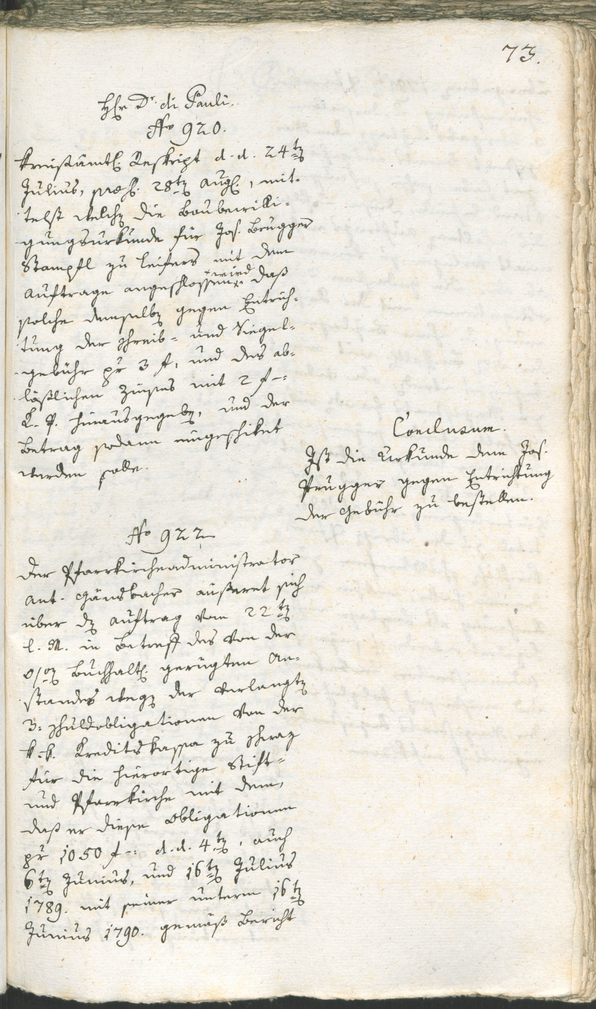 73.
Hr Dr. di Pauli.
No 920.
Kreisämtl. Reskript d. d. 24tn
Julius, praes. 28tn Augl., mit-
telst welchn die Baubewilli-
gungsurkunde für Jos. Brugger
Stampfl zu Leifers mit dem
Auftrage angeschlossen wird, daß
solche demselbn gegen Entrich-
tung der Schreib- und Siegel-
gebühr pr 3 f, und des ab-
lößlichen Zinses mit 2 f --
hinausgegebn, und der
Betrag sodann eingeschiket
werden solle.
Conclusum.
Ist die Urkunde dem Jos.
Prugger gegen Entrichtung
der Gebühr zu bestellen.
No 922
Der Pfarrkircheadministrator
Ant. Gänsbacher äußeret sich
über dn Auftrag vom 22tn
l. M. in Betreff des von der
Buchhaltl. gerügten An-
standes wegn der verlangtn
3: Schuldobligationen von der
k. k. Kreditskassa zu Schwaz
für die hierortige Stift-
und Pfarrkirche mit dem,
daß er diese Obligationen
pr 1050 f -- d. d. 4tn, auch
6tn Junius, und 16tn Julius
1789. mit seiner unterm 16tn
Junius 1790. gemäß Bericht